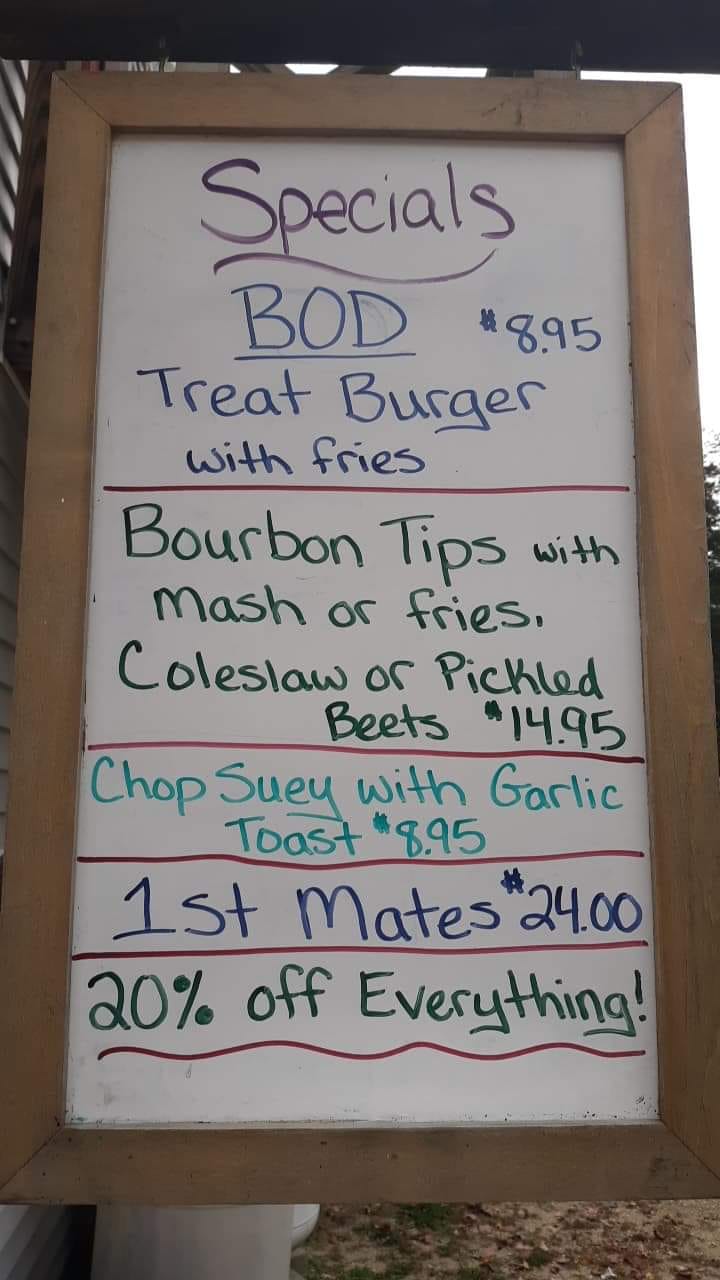 Specials
BOD $8.95
Treat Burger
with fries
Bourbon Tips with
Mash or fries.
Coleslaw or Pickled
Beets $14.95
Chop Suey with Garlic
Toast $8.95
1st Mates $24.00
20% off Everything!